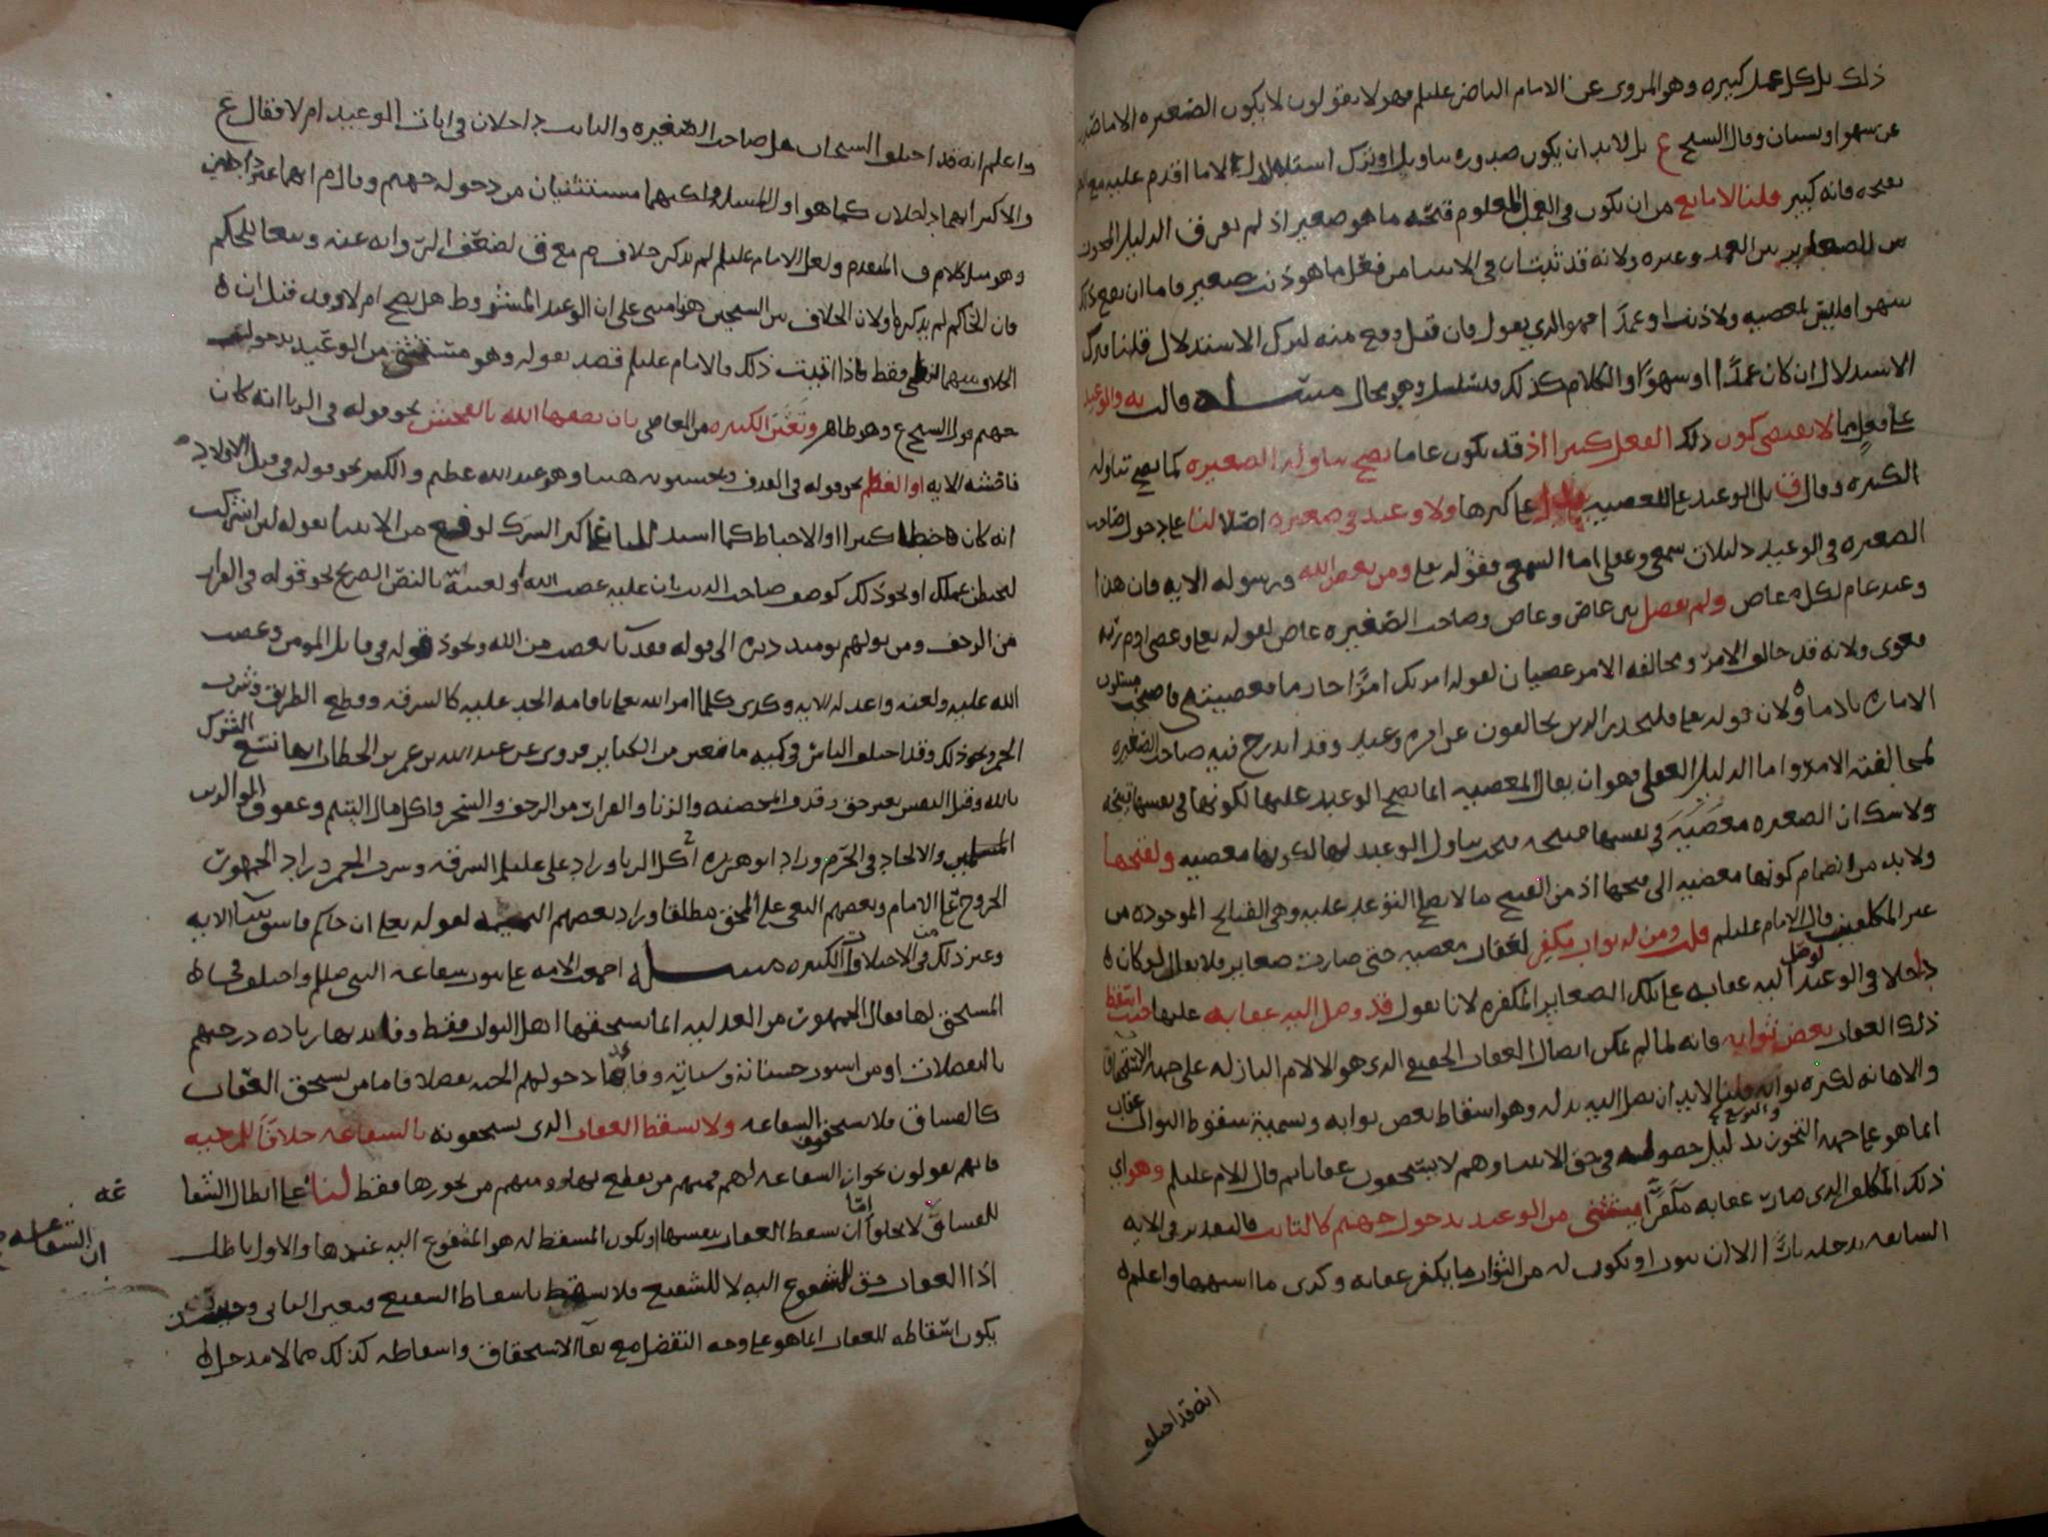 ذلك بل كل عمد كبيره وهو المروي عن الامام الناصر عليلم فهولا يقولون لا يكون الصغيره الا ما صدر
عن سهو او نسيان وقال الشيخ ع بل لا بد ان يكون صدوره بتاويل او بترك استدلال الا ما اقدم عليه مع
بقبحه فانه كبير قلنا لا مانع من ان يكون في الفعل المعلوم قبحه ما هو صغير اذ لم يفرق الدليل
بين العمد وغيره ولانه قد ثبت ان في الانبيا من فعل ما هو ذنب صغير فاما ان يقع ذلك
سهوا فليس بمعصيه ولا ذنب او عمدا فهو الذي يقول فان قيل وقع منه لترك الاستدلال قلنا ترك
الاستدلال ان كان عمدًا او سهوًا والكلام كذلك فتسلسل وهو محال مسله قالت يه والوعيد
على فعل ما لا يقتضي كون ذلك الفعل كبيرا اذ قد يكون عاما يصح تناوله الصغيره كما يصح تناوله
الكبيره وقال ق بل الوعيد على المعصيه على كبرها ولا وعيد في صغيره اصلا لنا على دخول صاحب
الصغيره في الوعيد دليلان سمعي وعقلي اما السمعي فقوله تعلى ومن يعص الله ورسوله الايه فان هذا
وعيد عام لكل عاص ولم يفصل بين عاص وعاص وصاحب الصغيره عاص لقوله تعلى وعصى ادم ربه
فغوى ولانه قد خالف الامر ومخالفه الامر عصيان لقوله امرتك امرًا حازما فعصيتني فاصبحت مسلوب
الاماره نادما ولان قوله تعلى فليحذر الذين يخالفون عن امره وعيد وقد اندرج فيه صاحب الصغيره
لمخالفته الامر واما الدليل العقلي فهو ان يقال المعصيه انما يصح الوعيد عليها لكونها في نفسها قبيحه
ولا شك ان الصغيره معصيه في نفسها قبيحه فيجب تناول الوعيد لها لكونها معصيه ولقبحها
ولا بد من انضمام كونها معصيه الى قبحها اذ من القبيح ما لا يصح التوعد عليه وهي القبائح الموجوده من
غير المكلفين قال الامام عليلم قلت ومن له ثواب مكفر لعقاب معصيه حتى صارت صغاير فلا يقال لو كان
داخلا في الوعيد لوصل اليه عقابه على تلك الصغاير المكفره لانا نقول قد وصل اليه عقابه عليها حيث اسقط
ذلك العقاب بعض ثوابه فانه لما لم يمكن ايصال العقاب الحقيقي الذي هو الالام النازله على جهه الاستحقاق
والاهانه لكثره ثوابه قلنا لا بد ان يصل اليه بدله وهو اسقاط بعض ثوابه وتسميه سقوط الثواب عقاب
انما هو على جهه التجوز والتوسع بدليل حصوله في حق الانبيا وهم لا يستحقون عقابا ثم قال الامام عليلم وهو اي
ذلك المكلف الذي صار عقابه مكفرًا مستثنى من الوعيد بدخول جهنم كالتائب فالتقدير في الايه
السابقه يدخله نارًا الا ان يتوب او يكون له من الثواب ما يكفر عقابه وكذى ما اشبهها واعلم
انه قد اختلف
واعلم انه قد اختلف الشيخان هل صاحب الصغيره والتائب داخلان في ايات الوعيد ام لا فقال ع
والاكثر انهما داخلان كما هو اول المسله ولكنهما مستثنيان من دخول جهنم وقال م انهما غير داخلين
وهو مثل كلام ق المتقدم ولعل الامام عليلم لم يذكر خلاف م مع ق لضعف الروايه عنه وتبعا للحاكم
فان الحاكم لم يذكرها ولان الخلاف بين الشيخين هنا مبني على ان الوعيد المشروط هل يصح ام لا وقد قيل ان
الخلاف بينهما لفظي فقط فاذا ثبت ذلك فالامام عليلم قصد بقوله وهو مستثنى من الوعيد بدخول
جهنم قول الشيخ ع وهو ظاهر وتعين الكبيره من المعاصي بان يصفها الله بالفحش نحو قوله في الزنا انه كان
فاحشه الايه او العظم نحو قوله في القذف وتحسبونه هينا وهو عند الله عظيم والكبر نحو قوله في قتل الاولاد
انه كان خطا كبيرا او الاحباط كما استدل على كبر الشرك لو وقع من الانبيا بقوله لئن اشركت
ليحبطن عملك او نحو ذلك كوصف صاحب الذنب بان عليه غضب الله ولعنته بالنص الصريح نحو قوله في الفرار
من الزحف ومن يولهم يومئذ دبره الى قوله فقد باء بغضب من الله ونحو قوله في قاتل المومن وغضب
الله عليه ولعنه واعد له الايه وكذى كلما امر الله تعلى باقامه الحد عليه كالسرقه وقطع الطريق وشرب
الخمر ونحو ذلك وقد اختلف الناس في كميه ما تعين من الكباير فروي عن عبد الله بن عمر بن الخطاب انها تسع الشرك
بالله وقتل النفس بغير حق وقذف المحصنه والزنا والفرار من الزحف والسحر واكل مال اليتيم وعقوق الوالدين
المسلمين والالحاد في الحرم وزاد ابو هريره اكل الربا وزاد علي عليلم السرقه وشرب الخمر وزاد الجمهور
الخروج على الامام وبعضهم البغي على المحق مطلقا وزاد بعضهم النميمه لقوله تعلى ان جاكم فاسق بنبا الايه
وغير ذلك من الاختلاف في الكبيره مسله اجمعت الامه على ثبوت شفاعه النبي صللم واختلف في
المستحق لها فقال الجمهور من العدليه انما يستحقها اهل الثواب فقط وفائدتها زياده درجتهم
بالتفضلات او من استوت حسناته وسيئاته وفائدتها دخولهم الجنه تفضلا فاما من يستحق العقاب
كالفساق فلا يستحقون الشفاعه ولا يسقط العقاب الذي يستحقونه بالشفاعه خلافًا للمرجيه
فانهم يقولون بجواز الشفاعه لهم فمنهم من يقطع بها ومنهم من يجوزها فقط لنا على ابطال الشفا
عه
ان الشفاعه
للفساق لا يخلوا اما ان يسقط العقاب بنفسها او يكون المسقط له هو المشفوع اليه عندها والاول باطل
اذ العقاب حق للمشفوع اليه لا للشفيع فلا يسقط باسقاط الشفيع فتعين الثاني وحينئذ
يكون اسقاطه للعقاب انما هو على وجه التفضل مع بقا الاستحقاق واسقاطه كذلك مما لا مدخل